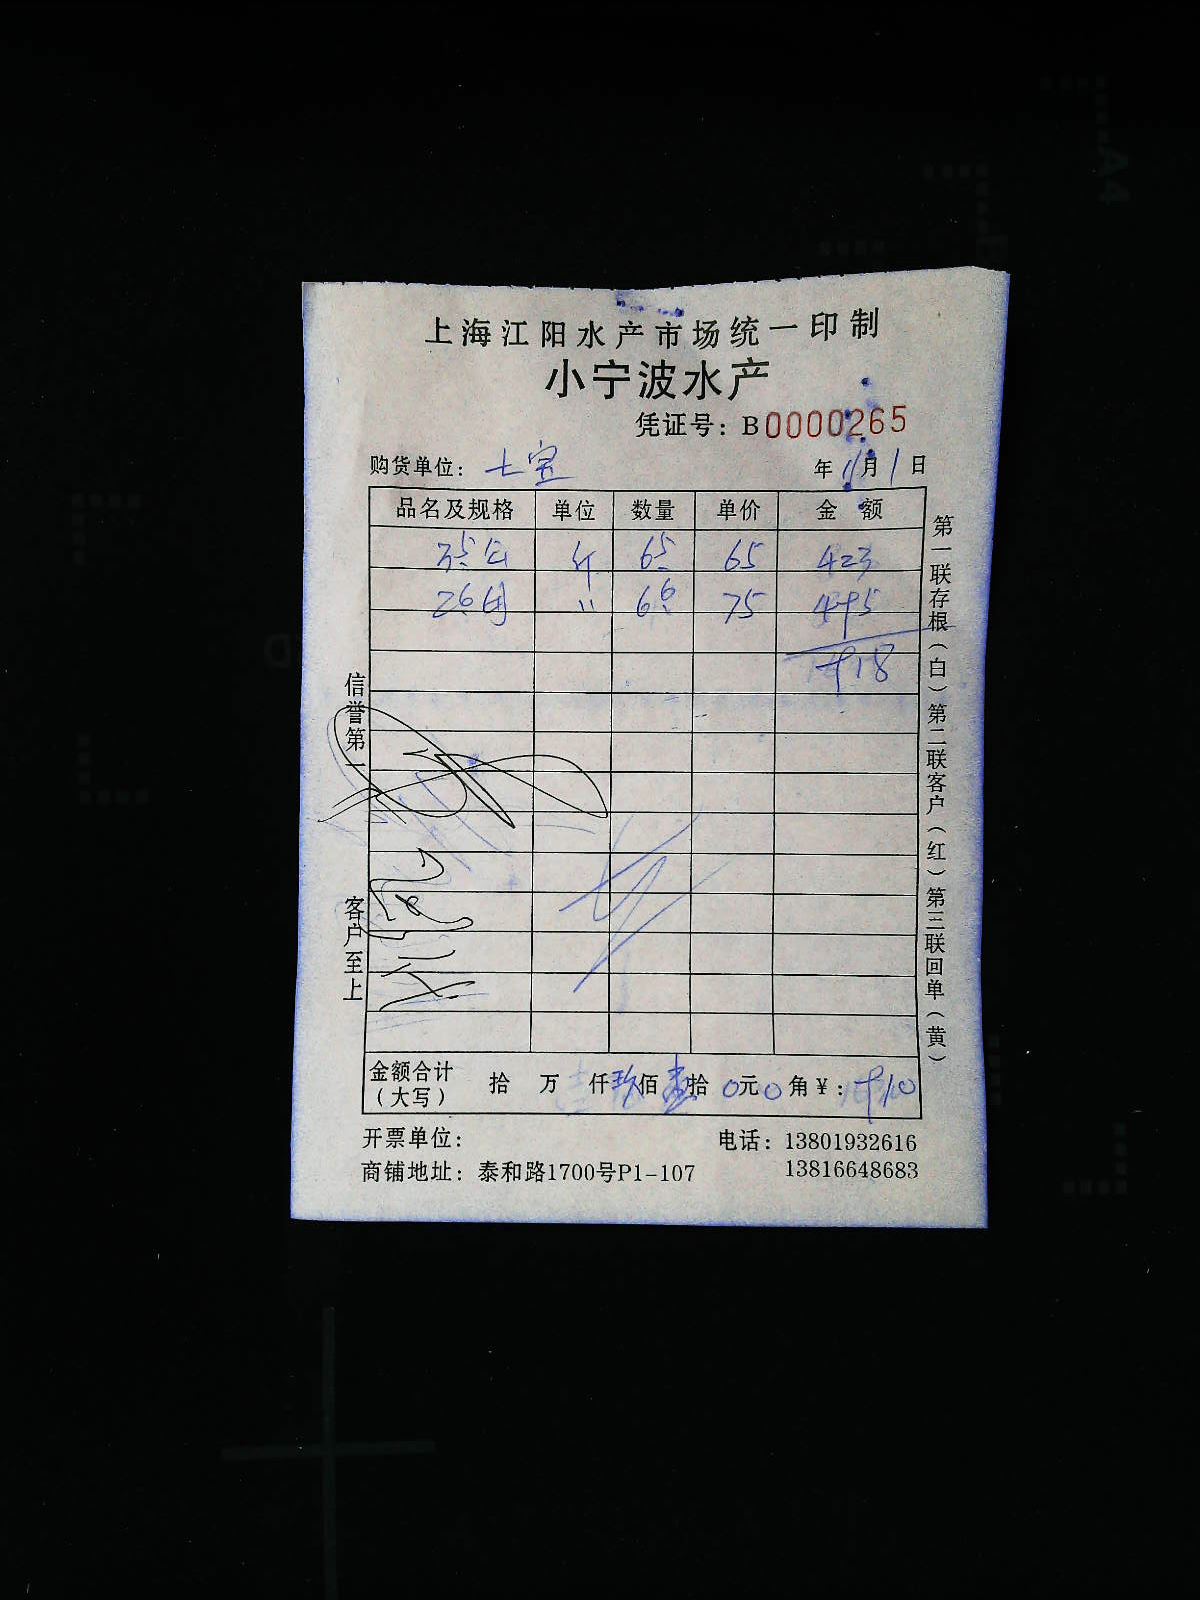 上海江阳水产市场统一印制
小宁波水产
凭证号：B0000265
购货单位：七宝 年11月1日
品名及规格 单位 数量 单价 金额
3.5公 斤 6.5 65 423
2.6母 〃 6.6 75 495
918
信誉第一
客户至上
第一联存根（白）第二联客户（红）第三联回单（黄）
金额合计（大写） 拾 万 仟玖佰壹拾0元0角¥：910
开票单位： 电话：13801932616
商铺地址：泰和路1700号P1-107 13816648683